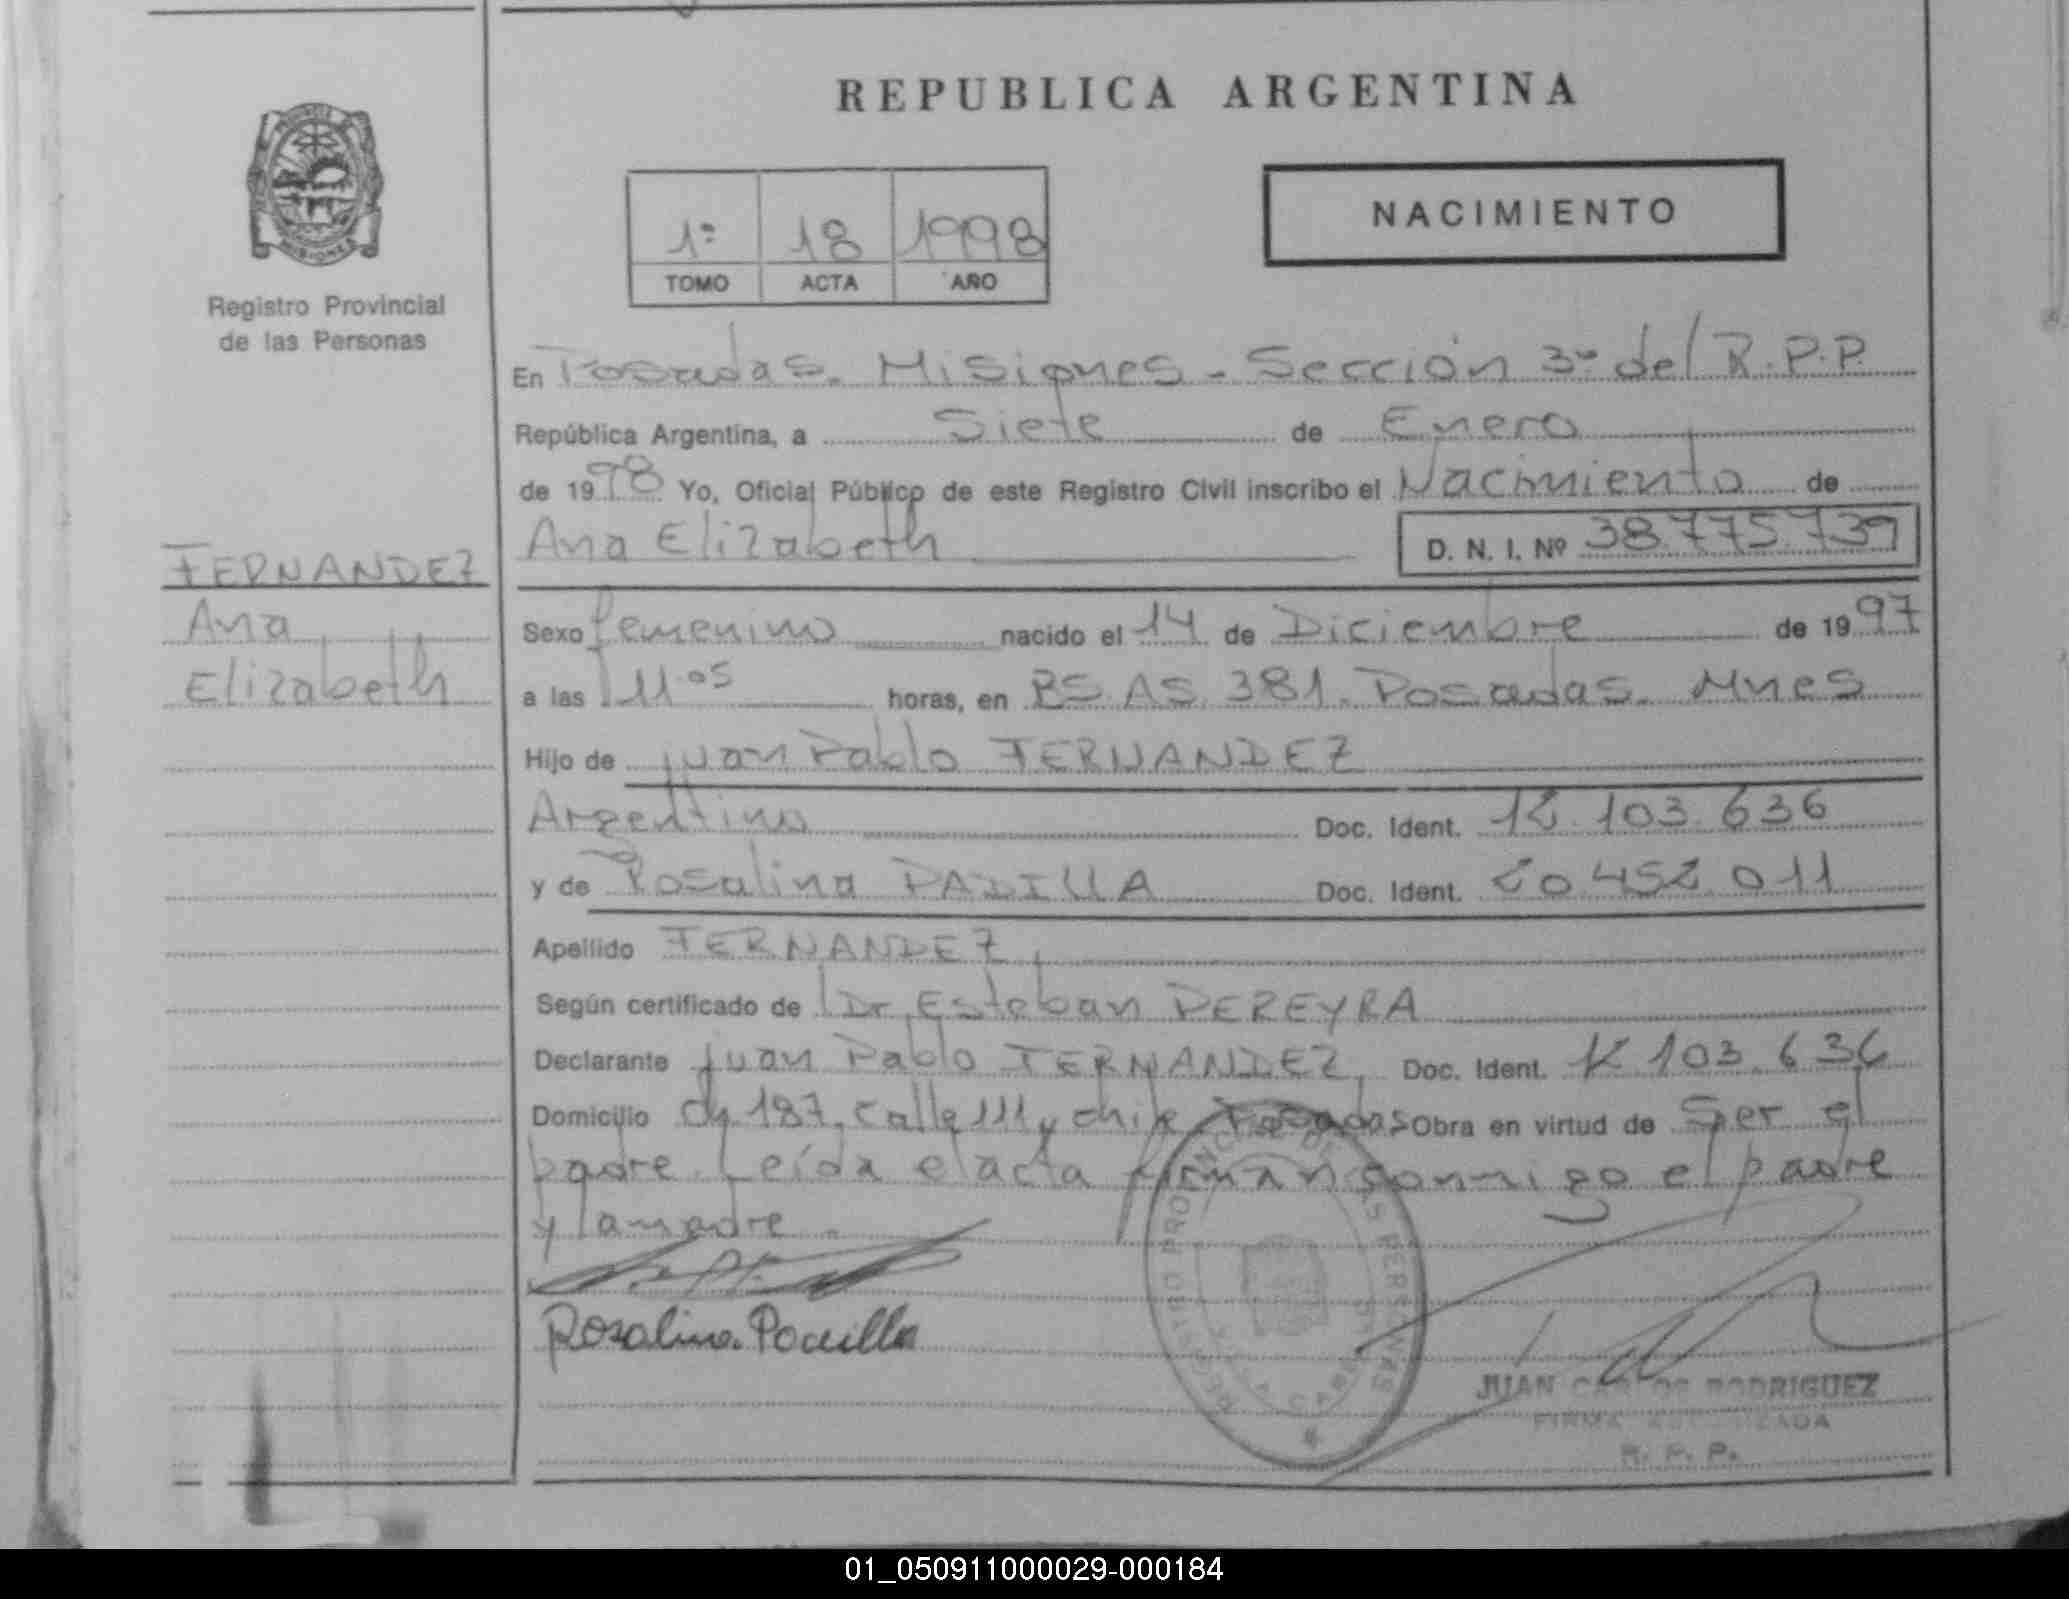 REPUBLICA ARGENTINA
PROVINCIA DE MISIONES
Registro Provincial
de las Personas
1º 18 1998
TOMO ACTA AÑO
NACIMIENTO
En Posadas. Misiones - Sección 3º del R.P.P.
República Argentina, a Siete de Enero
de 1998 Yo, Oficial Público de este Registro Civil inscribo el Nacimiento de
Ana Elizabeth D. N. I. Nº 38.775.739
FERNANDEZ
Ana
Elizabeth
Sexo femenino nacido el 14 de Diciembre de 1997
a las 11.05 horas, en BS. AS. 381. Posadas. Mnes
Hijo de Juan Pablo FERNANDEZ
Argentino Doc. Ident. 12.103.636
y de Rosalina PADILLA Doc. Ident. 20.452.011
Apellido FERNANDEZ
Según certificado de Dr. Esteban PEREYRA
Declarante Juan Pablo FERNANDEZ, Doc. Ident. 12.103.636
Domicilio Ch. 187, calle 111 y chile Posadas Obra en virtud de Ser el
padre. Leída el acta firman conmigo el padre
y la madre.
Rosalina Padilla
REGISTRO PROVINCIAL DE LAS PERSONAS
JUAN CARLOS RODRIGUEZ
FIRMA AUTORIZADA
R. P. P.
01_050911000029-000184